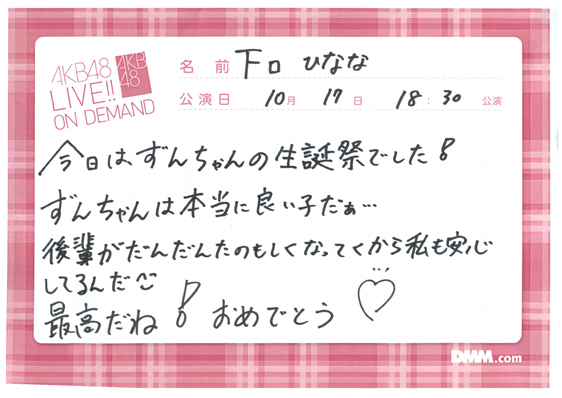 AKB48
LIVE!!
ON DEMAND
AKB
48
名前 下口 ひなな
公演日 10月 17日 18:30 公演
今日はずんちゃんの生誕祭でした!
ずんちゃんは本当に良い子だぁ…
後輩がだんだんたのもしくなってくから私も安心
してるんだ
最高だね! おめでとう♡
DMM.com